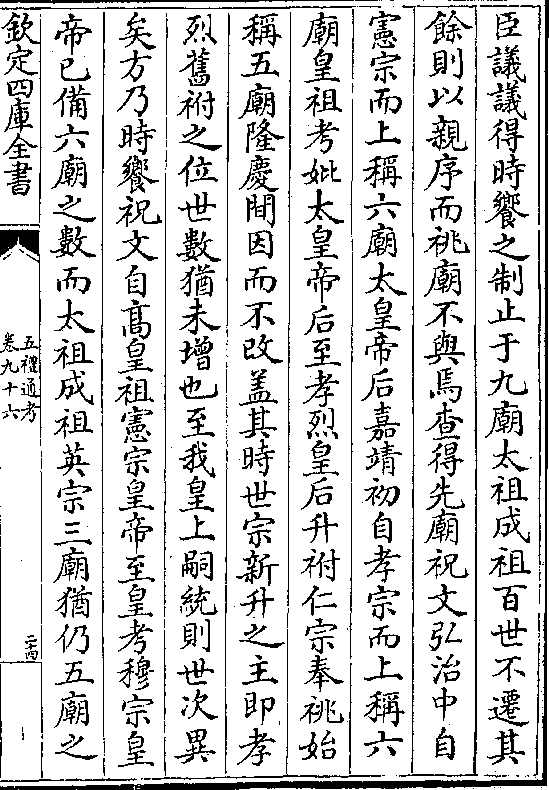 臣議議得時饗之制止于九廟太祖成祖百世不遷其
餘則以親序而祧廟不與焉查得先廟祝文弘治中自
憲宗而上稱六廟太皇帝后嘉靖初自孝宗而上稱六
廟皇祖考妣太皇帝后至孝烈皇后升祔仁宗奉祧始
稱五廟隆慶間因而不改盖其時世宗新升之主即孝
烈舊祔之位世數猶未增也至我皇上嗣統則世次異
矣方乃時饗祝文自髙皇祖憲宗皇帝至皇考穆宗皇
帝已備六廟之數而太祖成祖英宗三廟猶仍五廟之
欽定四庫全書
五禮通考
卷九十六
二十四